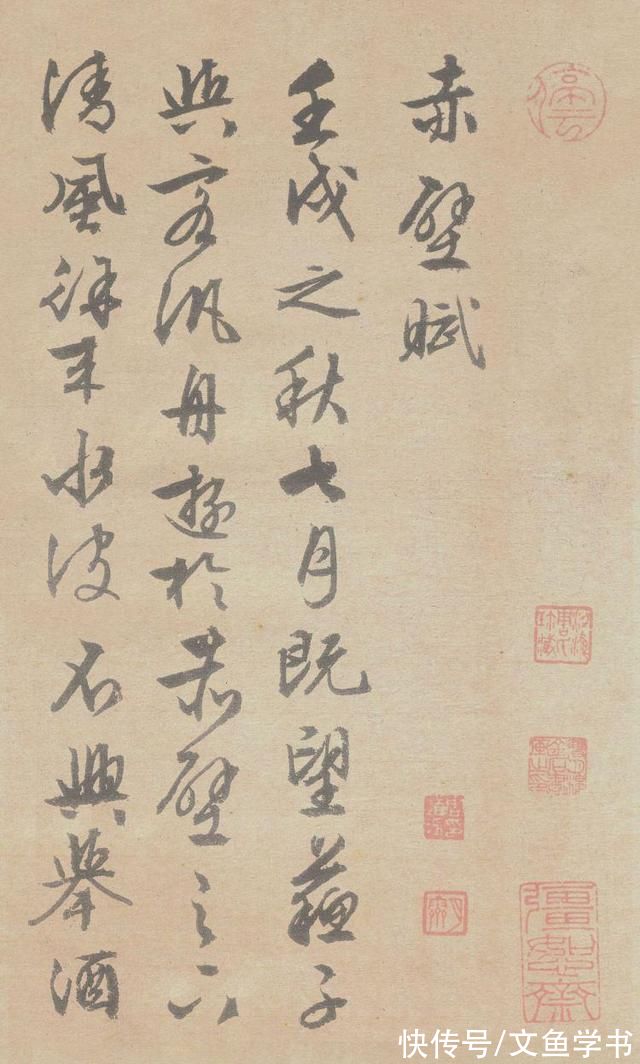 彊恕齋
赤壁賦
壬戌之秋七月既望蘇子
與客汎舟遊於赤壁之下
清風徐来水波不興舉酒
快传号/文鱼学书